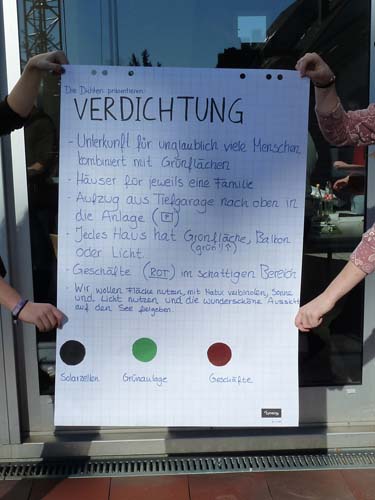 Die Dichten präsentieren:
VERDICHTUNG
- Unterkunft für unglaublich viele Menschen
kombiniert mit Grünflächen
- Häuser für jeweils eine Familie
- Aufzug aus Tiefgarage nach oben in
die Anlage (P)
- Jedes Haus hat Grünfläche, Balkon
oder Licht (grün!↑)
- Geschäfte (ROT) im schattigen Bereich
- Wir wollen Fläche nutzen, mit Natur verbinden, Sonne
und Licht nutzen, und die wunderschöne Aussicht
auf den See
Solarzellen Grünanlage Geschäfte